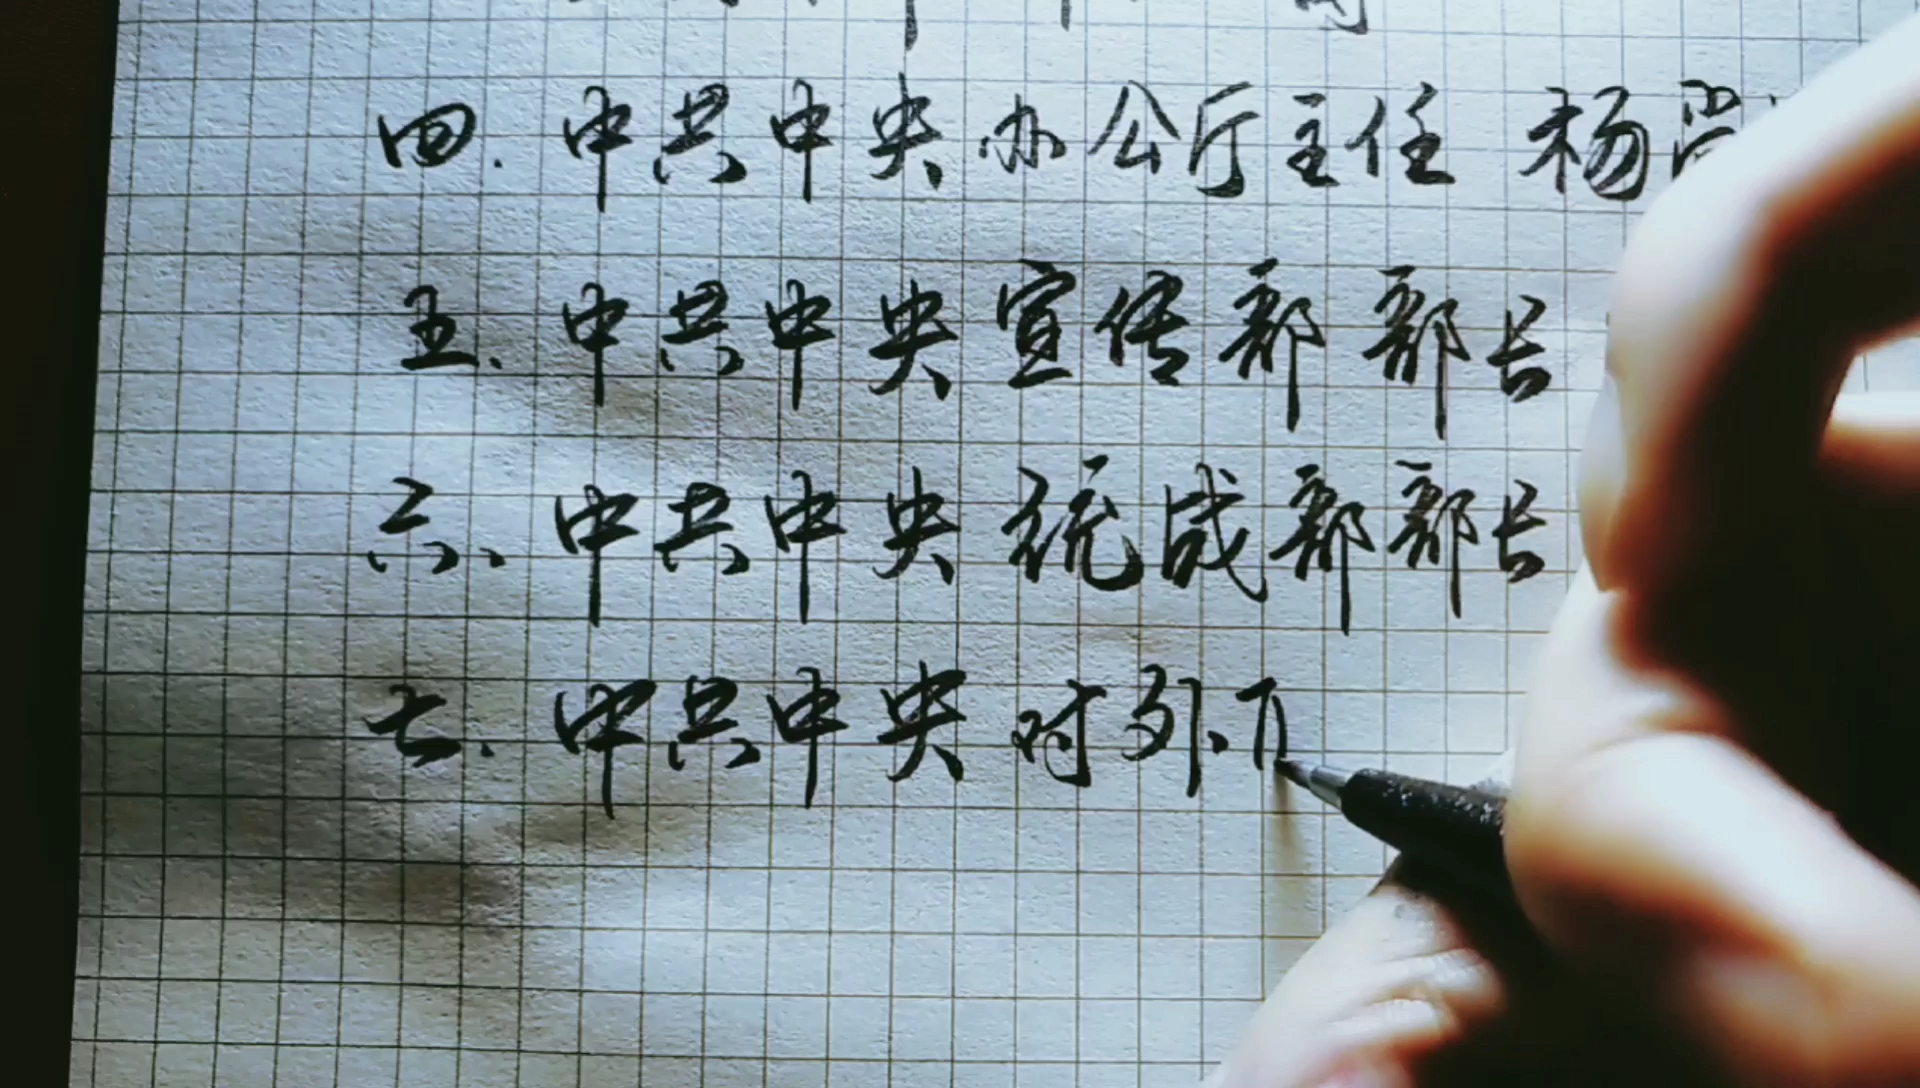 四.中共中央办公厅主任 杨尚
五.中共中央宣传部部长
六、中共中央统战部部长
七.中共中央对外